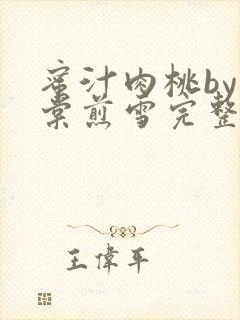 蜜汁肉桃by
棠煎雪完整
王偉平